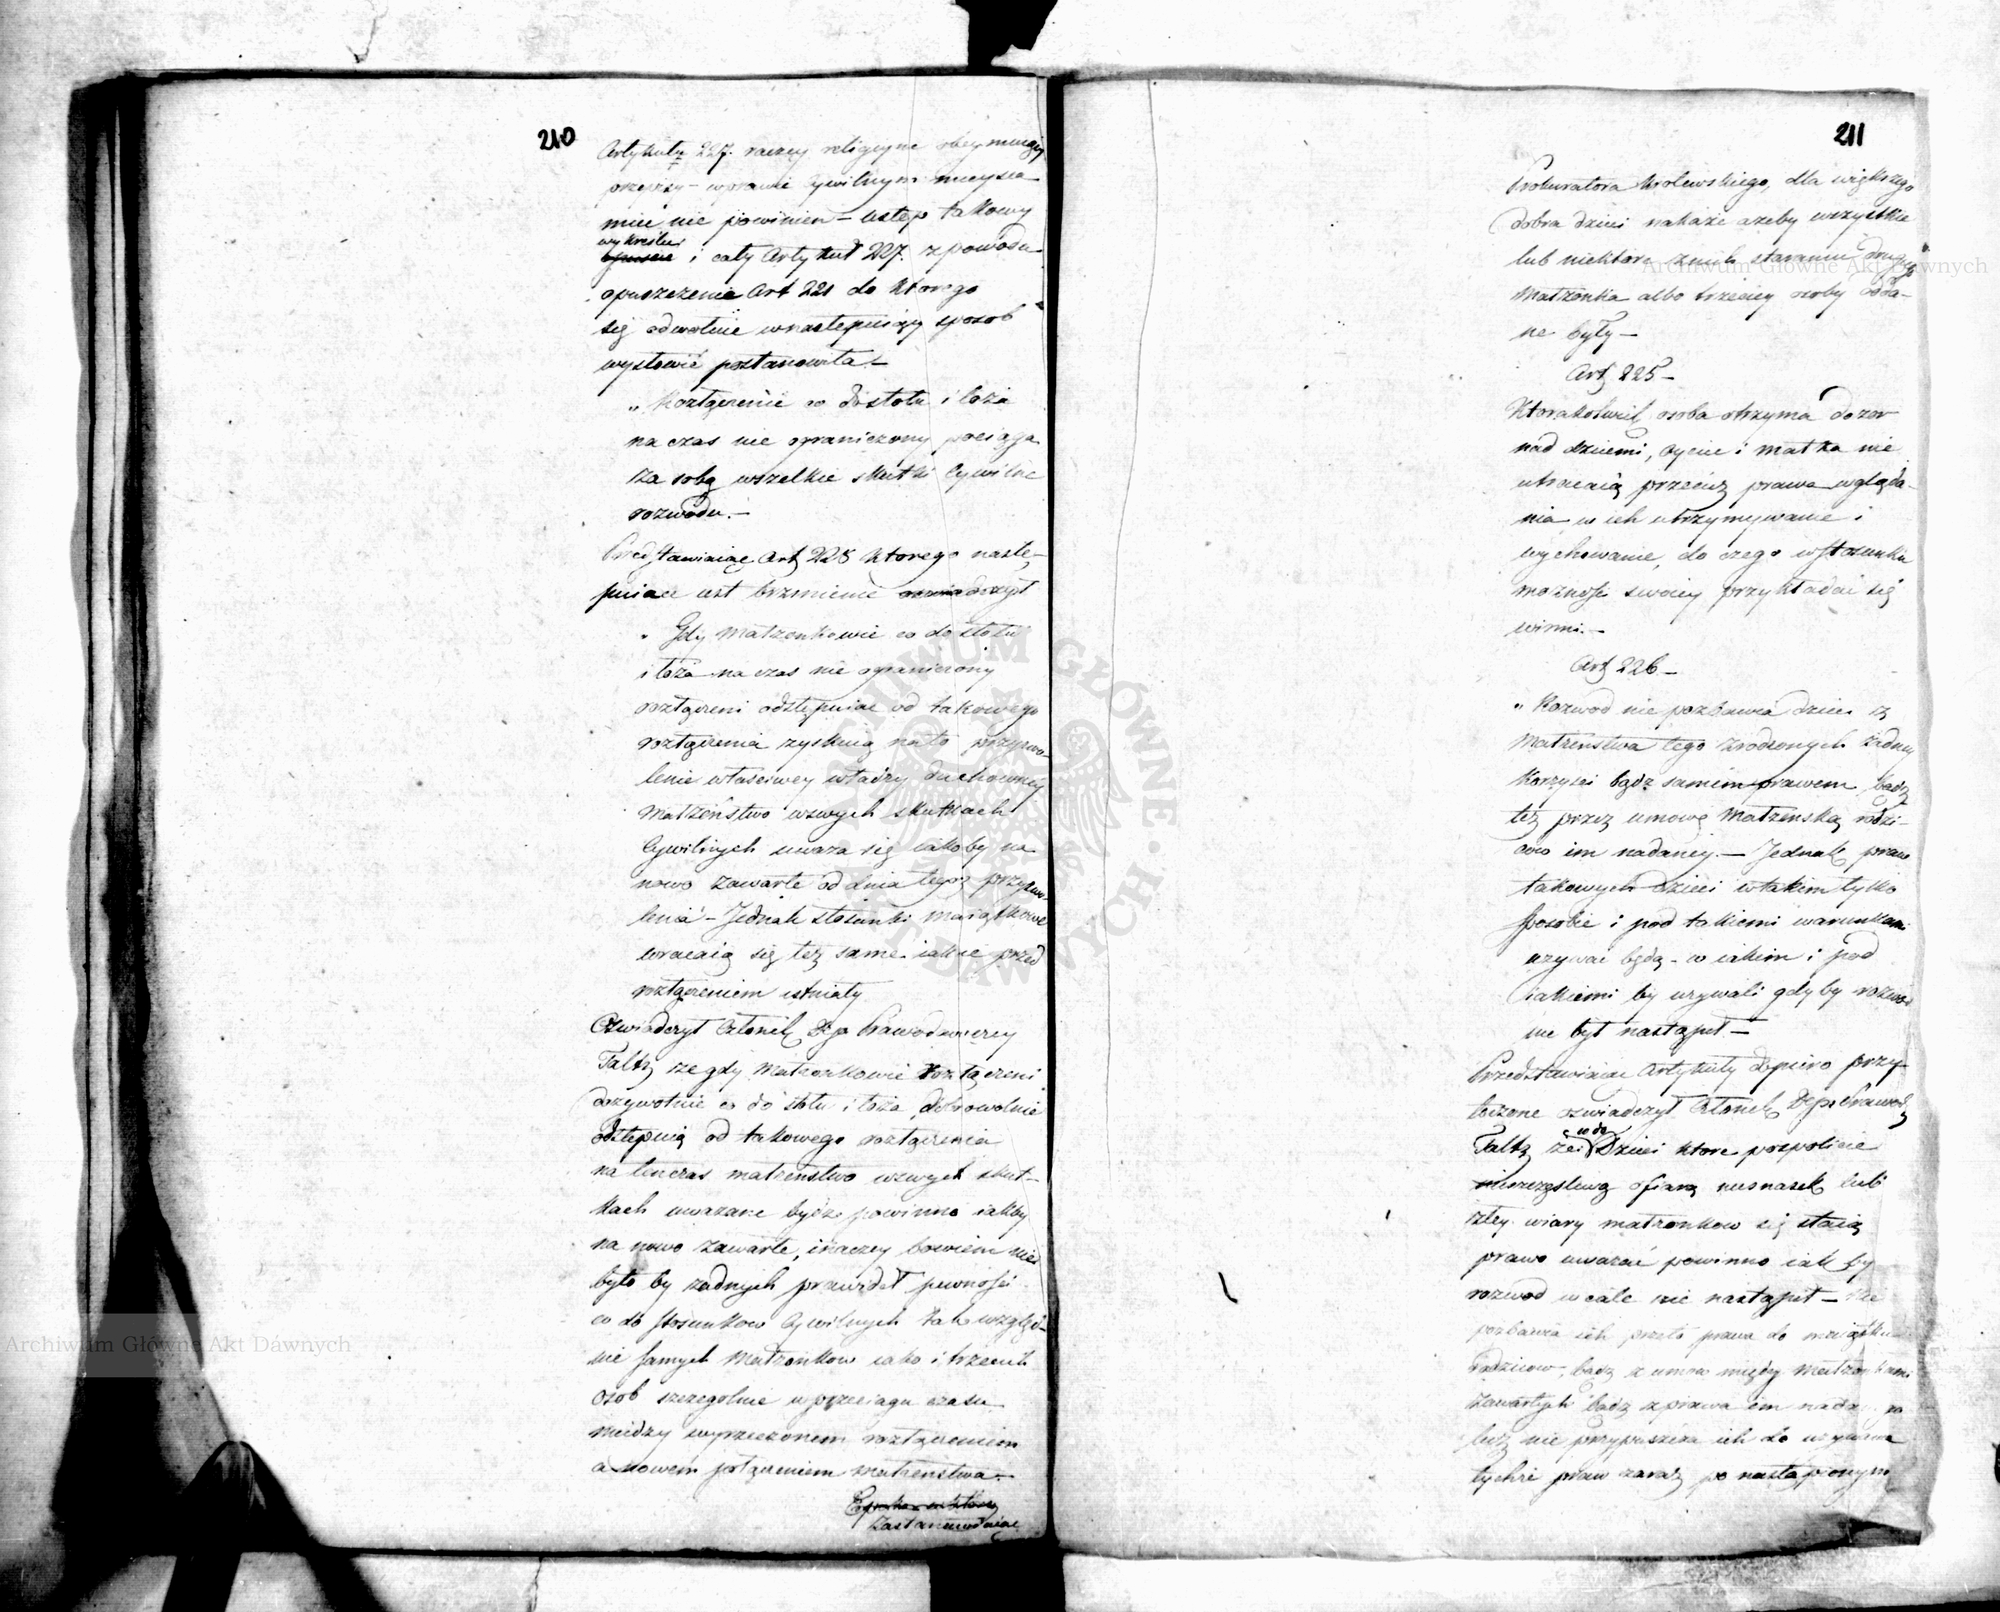 210
Artykułu 227. raczey religiyne obeymuiący
przepisy – w prawie cywilnym mieysca
mieć nie powinien – ustęp takowy
wykreślić
i cały Artykuł 227. z powodu
opuszczenia Art 221 do ktorego
się odwołuie w następuiący sposob
wysłowić postanowiła –
„ Rozłączenie co do stołu i łoża
na czas nie ograniczony pociąga
za sobą wszelkie skutki Cywilne
rozwodu. –
Przedstawiaiąc Art 228 ktorego nastę-
puiące iest brzmienie oświadczył
„ Gdy Małżonkowie co do stołu
i łoża na czas nie ograniczony
rozłączeni odstępuiąc od takowego
rozłączenia zyskuią na to przyzwo-
lenie właściwey władzy duchowney
Małżeństwo w swych skutkach
Cywilnych uważa się iakoby na
nowo zawarte od dnia tegoż przyzwo-
lenia – Jednak stosunki maiątkowe
wracaią się też same iakie przed
rozłączeniem istniały
Oświadczył Członek Dep Prawodawczey
Faltz że gdy Małżonkowie rozłączeni
dożywotnie co do stołu i łoża, dobrowolnie
odstępuią od takowego rozłączenia
na tenczas małżeństwo w swych skut-
kach uważane bydź powinno iakby
na nowo zawarte, inaczey bowiem nie
było by żadnych prawideł pewności
co do stosunkow Cywilnych tak wzglę-
nie samych Małżonkow iako i trzecich
osob szczegolnie w przeciągu czasu
między wyrzeczonem rozłączeniem
a nowem połączeniem małżeństwa. –
Zastanawiaiąc
211
Prokuratora Krolewskiego, dla większego
dobra dzieci nakaże ażeby wszystkie
lub niektore z nich staraniu drugiego
Małżonka albo trzeciey osoby odda-
ne były –
Art 225 –
Ktorakolwiek osoba otrzyma dozor
nad dziećmi, oyciec i matka nie
utracaią przecież prawa wgląda-
nia w ich utrzymywanie i
wychowanie, do czego w stosunku
możności swoiey przykładać się
winni. –
Art 226 –
„ Rozwod nie pozbawia dzieci z
Małżeństwa tego zrodzonych żadney
korzyści bądź samem prawem, bądź
też przez umowę Małżenską rodzi-
cow im nadaney. – Jednak praw
takowych dzieci w takim tylko
sposobie i pod takiemi warunkami
używać będą – w iakim i pod
iakiemi by używali gdyby rozwod
nie był nastąpił –
Przedstawiaiąc Artykuły dopiero przy-
toczone oświadczył Członek Dep: Prawod
co do
Faltz że Dzieci ktore pospolicie
nieszczęśliwą ofiarą niesnasek lub
złey wiary małżonkow się staią
prawo uważać powinno iak by
rozwod wcale nie nastąpił – Nie
pozbawia ich przeto prawa do maiątku
rodzicow, bądź z umow między Małżonkami
zawartych bądź z prawa im nada
lecz nie przypuszcza ich do używania
tychże praw zaraz po nastąpionym
Archiwum Główne Akt Dawnych
Archiwum Główne Akt Dawnych
ARCHIWUM GŁÓWNE • AKT DAWNYCH